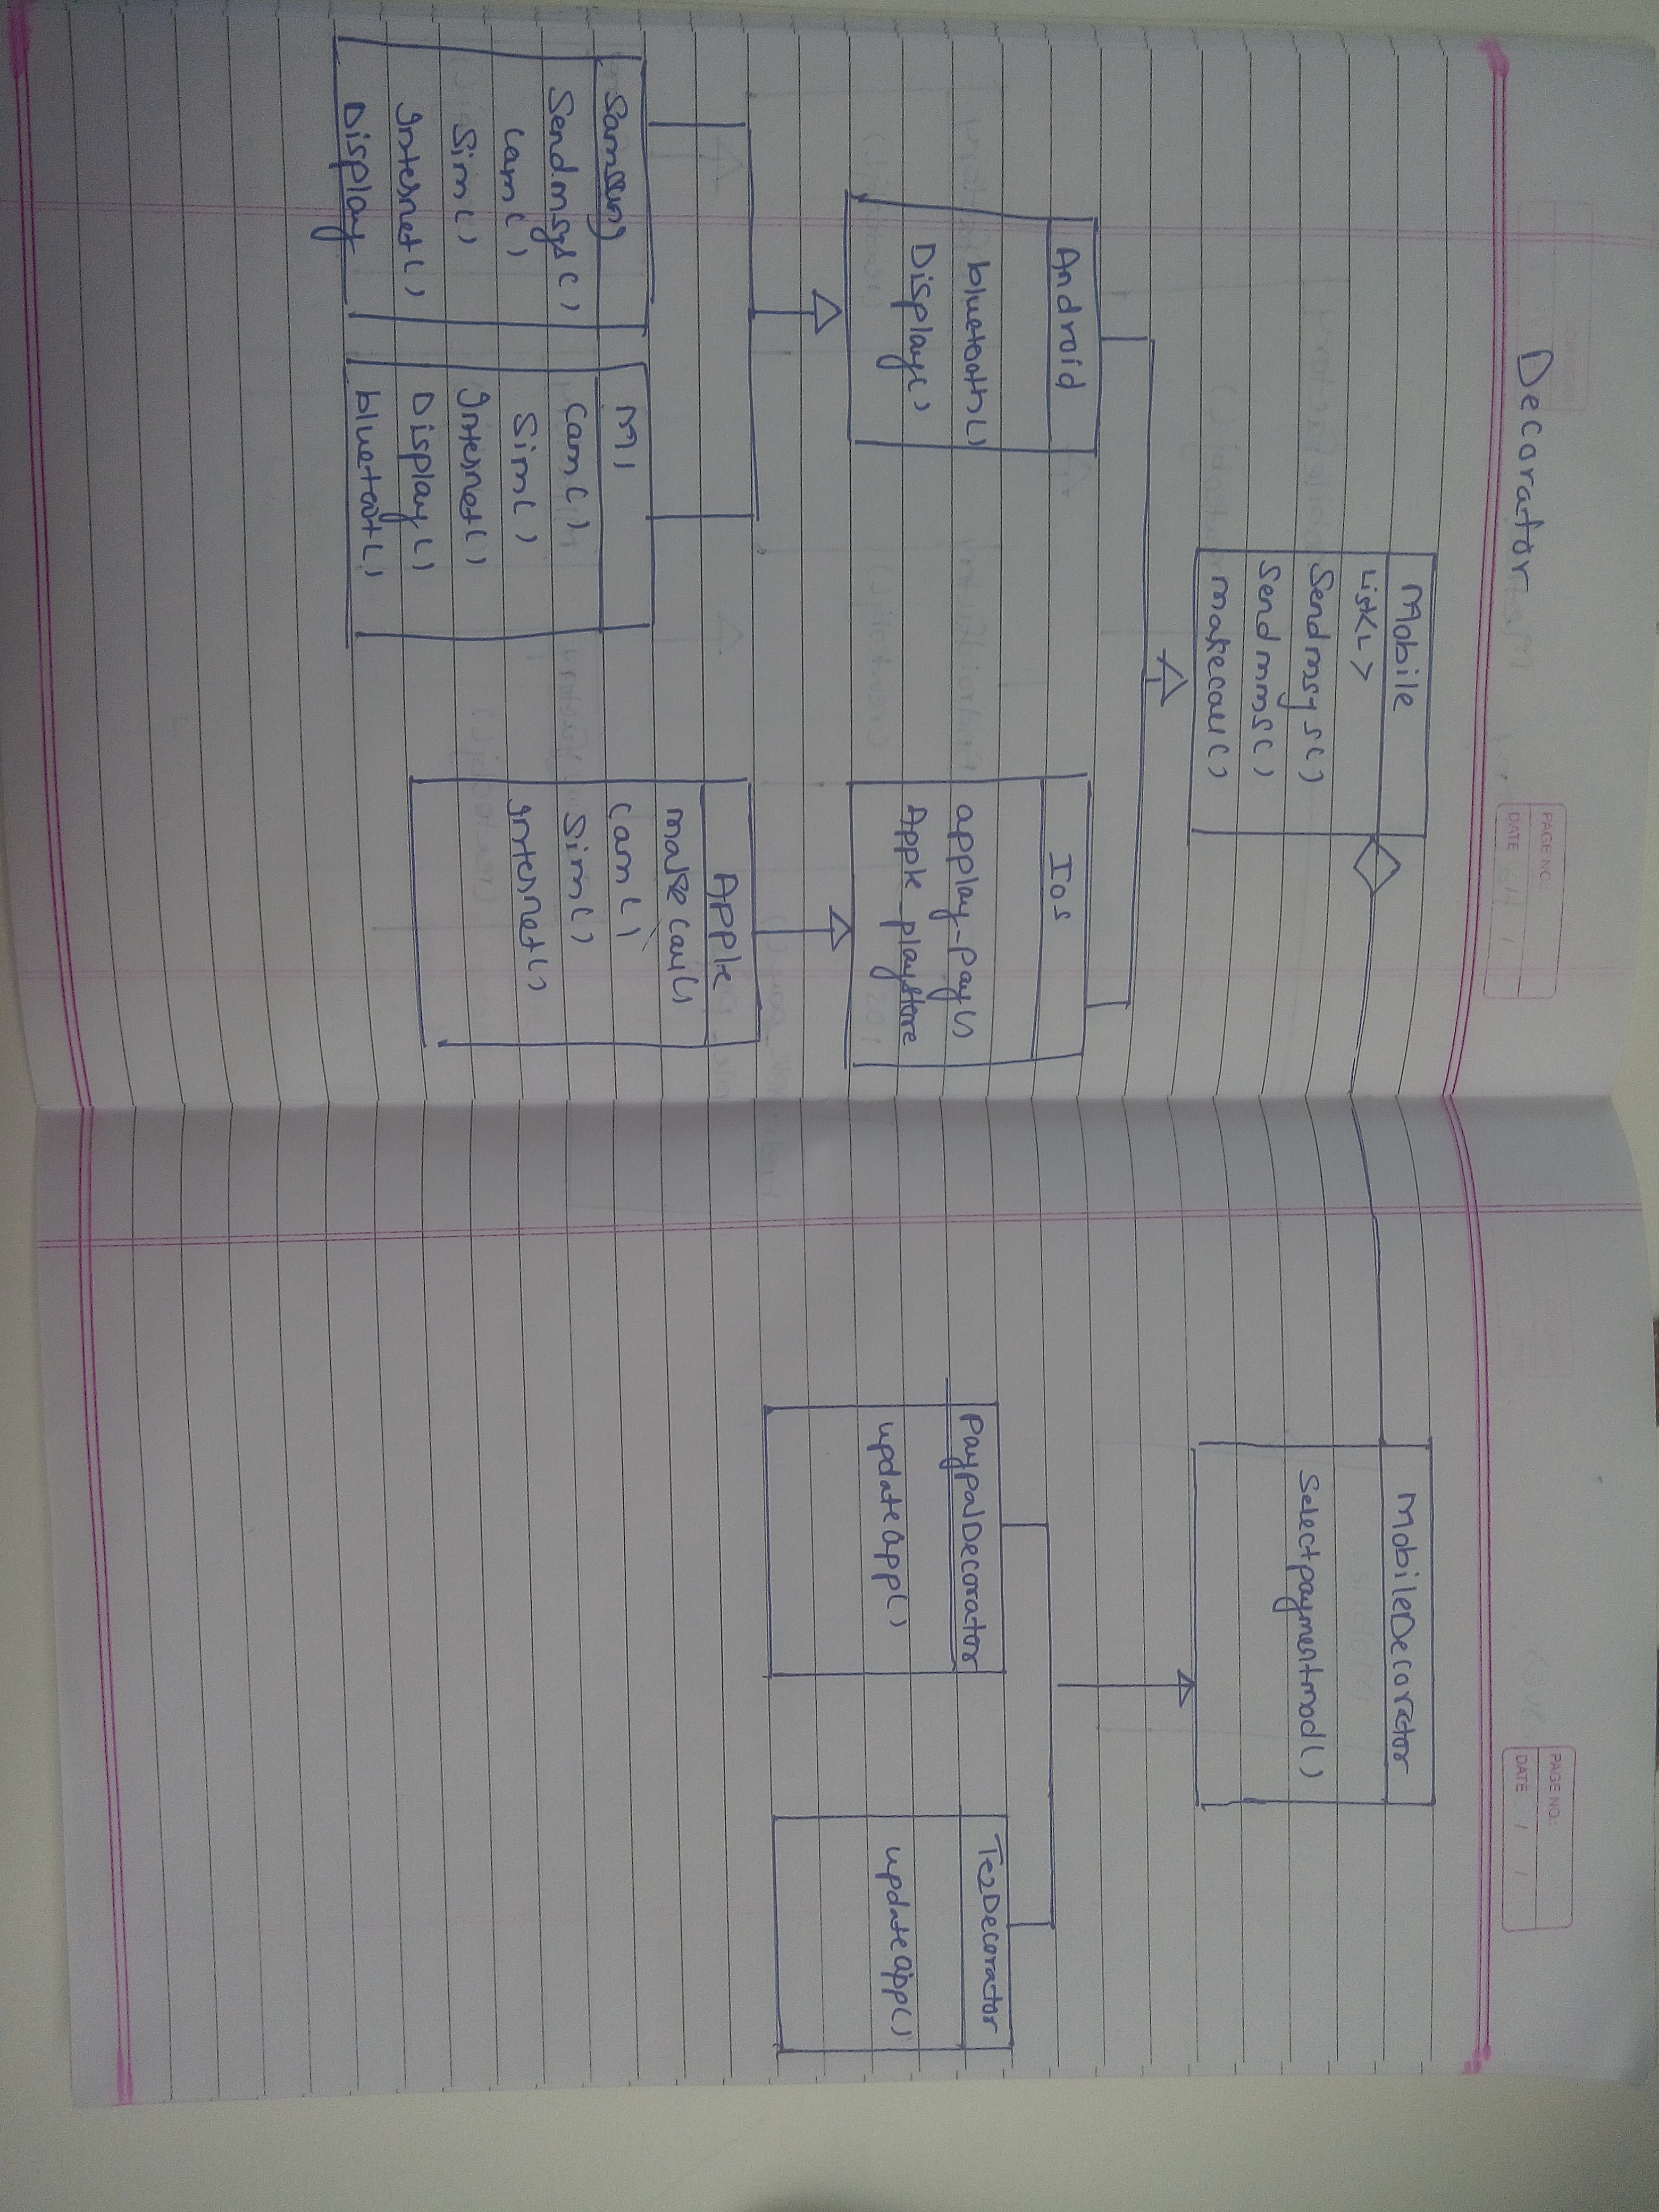 Decorator
PAGE NO.:
DATE / /
Mobile
List<L>
Sendmsgs()
Sendmms()
makecall()
Android
bluetooth()
Display()
Ios
applay-pay()
Apple playstore
Samsung
Sendmsgs()
Cam()
Sim()
Internet()
Display
MI
Cam()
Sim()
Internet()
Display()
bluetoot()
Apple
makecall()
Cam()
Sim()
Internet()
PAGE NO.:
DATE / /
MobileDecorator
Selectpaymentmod()
PaypalDecorrator
updateapp()
TezDecorator
updateapp()